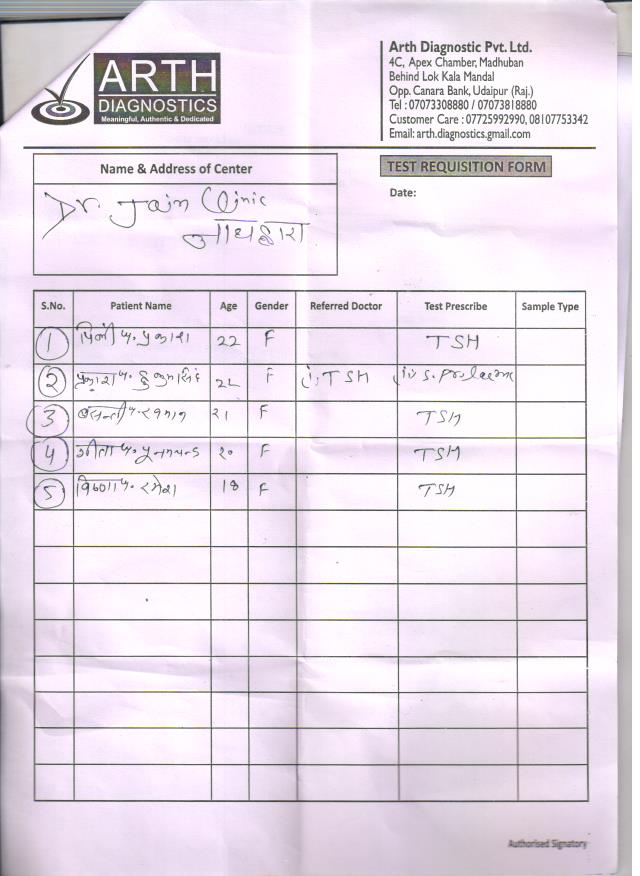 ARTH
DIAGNOSTICS
Meaningful, Authentic & Dedicated
Arth Diagnostic Pvt. Ltd.
4C, Apex Chamber, Madhuban
Behind Lok Kala Mandal
Opp. Canara Bank, Udaipur (Raj.)
Tel : 07073308880 / 07073818880
Customer Care : 07725992990, 08107753342
Email: arth.diagnostics.gmail.com
Name & Address of Center
TEST REQUISITION FORM
Date:
Dr. Jain Clinic
नाथद्वारा
S.No. Patient Name Age Gender Referred Doctor Test Prescribe Sample Type
1 प. प्रकाश 22 F TSH
2 प. 22 F (i) TSH (ii) S.
3 प. २१ F TSH
4 गीता प. २० F TSH
5 प. रमेश 18 F TSH
Authorised Signatory